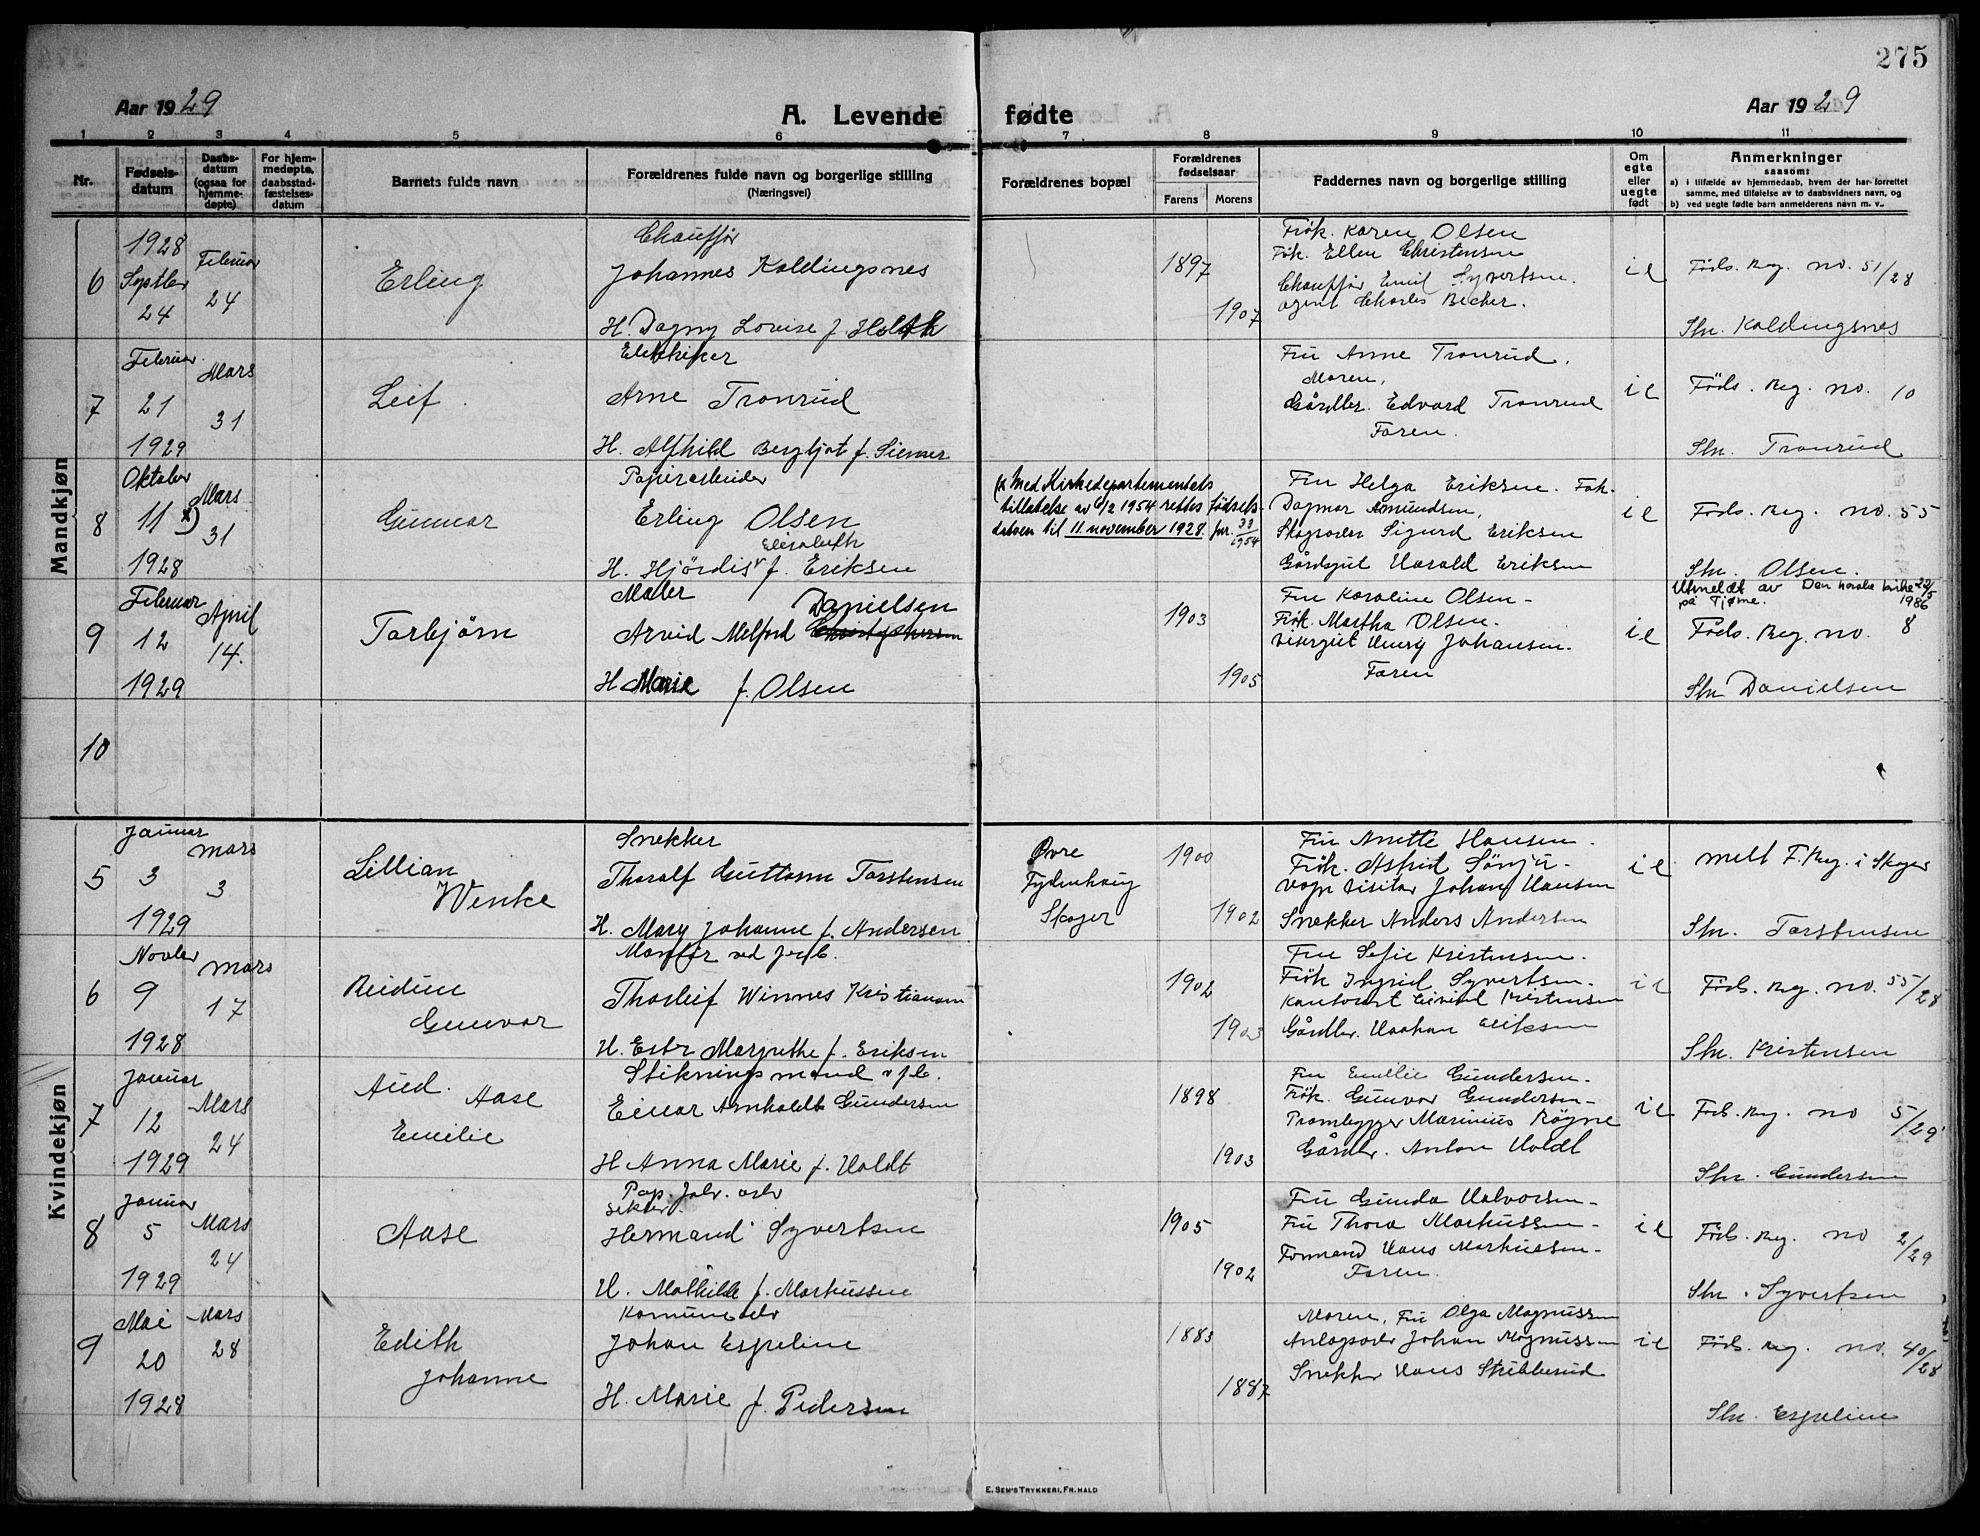 275
Aar 1929
A. Levende fødte
Aar 1929
1 2 3 4 5 6 7 8 9 10 11
Nr.
Fødsels-
datum
Daabs-
datum
(ogsaa for
hjemme-
døpte)
For hjem-
medøpte,
daabsstad-
fæstelses-
datum
Barnets fulde navn
Forældrenes fulde navn og borgerlige stilling
(Næringsvei)
Forældrenes bopæl
Forældrenes
fødselsaar
Farens Morens
Faddernes navn og borgerlige stilling
Om
egte
eller
uegte
født
Anmerkninger
saasom:
a) i tilfælde av hjemmedaab, hvem der har forrettet
samme, med tilføielse av to daabsvidners navn, og
b) ved uegte fødte barn anmelderens navn m. v..
Mandkjøn
6
1928
Septber
24
Februar
24
Erling
Chauffør
Johannes Koldingsnes
H. Dagny Lovise f. Holth
1897
1907
Frøk. Karen Olsen
Frk. Ellen Christensen
Chauffør Emil Syvertsen.
agent Charles Becker.
ie
Føds. Reg. no. 51/28
Stn. Koldingsnes
7
Februar
21
1929
Mars
31
Leif
Elektriker
Arne Tronrud
H. Alfhild Bergljot f. Siemer
Fru Anne Tronrud,
Moren,
Gårdbr. Edvard Tronrud
Faren.
ie
Føds. Reg. no. 10
Stn. Tronrud
8
Oktober
11 x)
1928
Mars
31
Gunnar
Papirarbeider
Erling Olsen
Elisabeth
H. Hjørdis v f. Eriksen
x Med Kirkedepartementets
tillatelse av 6/2 1954 rettes fødsels-
datoen til 11. november 1928. jnr. 33/1954
Fru Helga Eriksen. Frk.
Dagmar Amundsen,
Skogsarb. Sigurd Eriksen
Gårdsgut Harald Eriksen
ie
Føds. Reg. no. 55
Stn. Olsen.
9
Februar
12
1929
April
14.
Torbjørn
Maler
Danielsen
Arvid Melford
H. Marie f. Olsen
1903
1905
Fru Karoline Olsen -
Frk. Martha Olsen -
visergut Henry Johansen.
Faren
ie
Utmeldt av Den norske kirke 22/5
på Tjøme. 1986
Føds. Reg. no. 8
Stn Danielsen
10
Kvindekjøn
5
Januar
3
1929
Mars
3
Lillian
Wenke
Snekker
Thoralf Guttorm Torstensen
H. Mary Johanne f. Andersen
Øvre
Fydenhaug
Skoger
1900
1902
Fru Anette Hansen.
Frøk. Astrid
Vogn visitør Johan Hansen
Snekker Anders Andersen
ie
melt F. Reg. i Skoger
Stn. Torstensen
6
Novber
9
1928
Mars
17
Reidun
Gunvor
Montør ved jrnb.
Thorleif Winnes Kristiansen
H. Ester Margrethe f. Eriksen
1902
1903
Fru Sofie Kristensen.
Frøk Ingrid Syvertsen.
Kontorist Eivind Kristensen
Gårdbr. Haakon Eriksen
ie
Føds. Reg. no. 55/28
Stn. Kristensen
7
Januar
12
1929
Mars
24
Aud. Aase
Emilie
Stikningsmand v jb.
Einar Arnholdt Gundersen
H Anna Marie f. Holdt
1898
1903
Fru Emilie Gundersen.
Frøk. Gunvor Gundersen -
Trombygger Marinius Røgne
Gårdbr. Anton Holdt
ie
Føds. Reg. no 5/29
Stn. Gundersen
8
Januar
5
1929
Mars
24
Aase
Pap. fabr. arb
Hermand Syvertsen
H. Mathilde f. Markussen
1905
1902
Fru Gunda Halvorsen -
Fru Thora Markussen -
Formand Hans Markussen -
Faren.
ie
Føds. Reg. no 2/29
Stn. Syvertsen
9
Mai
20
1928
Mars
28
Edith
Johanne
Komunearb
Johan Espeline
H. Marie f. Pedersen
1883
1887
Moren, Fru Olga Magnussen
Anlagsarb Johan Magnussen
Snekker Hans Stubberud
ie
Føds. Reg. no. 40/28
Stn. Espeline
E. SEM'S TRYKKERI, FR.HALD